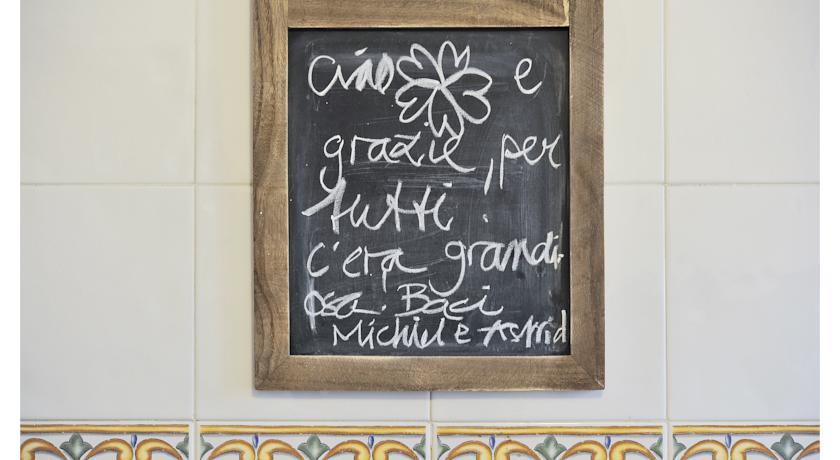 Ciao e
grazie, per
tutti.
c'era grandi
osa. Baci
Michiel e Astrid